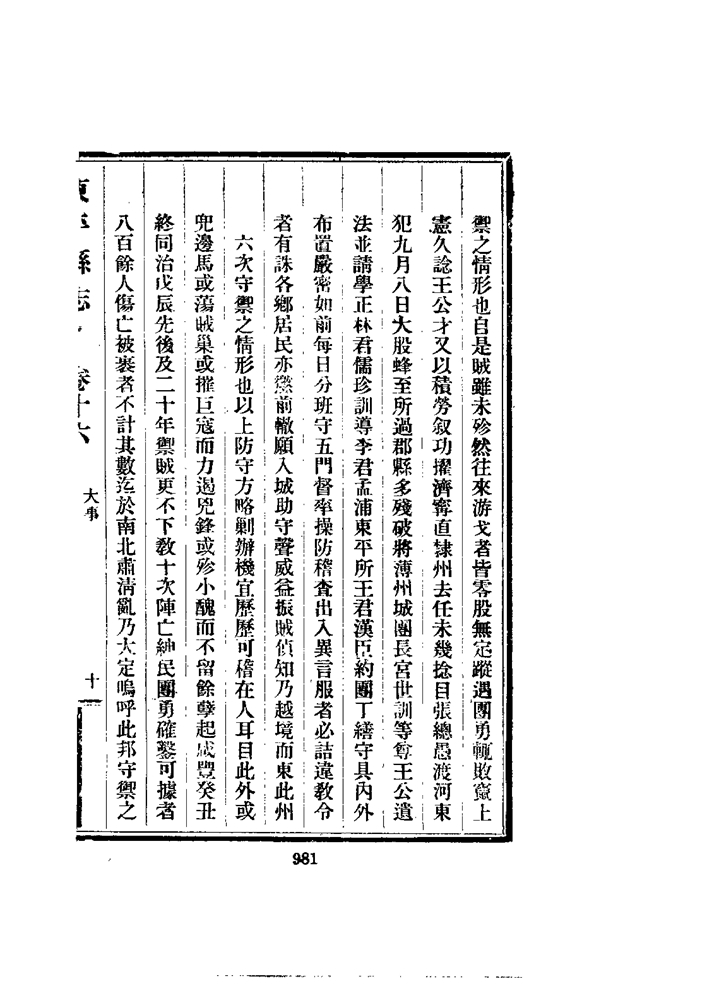 禦之情形也自是賊雖未殄然往來游弋者皆零股無定蹤遇團勇輒敗竄上
憲久諗王公才又以積勞叙功擢濟甯直隸州去任未幾捻目張總愚渡河東
犯九月八日大股蜂至所過郡縣多殘破將薄州城團長宮世訓等尊王公遺
法並請學正林君儒珍訓導李君孟浦東平所王君漢臣約團丁繕守具內外
布置嚴密如前每日分班守五門督率操防稽查出入異言服者必詰違教令
者有誅各鄉居民亦懲前轍願入城助守聲威益振賊偵知乃越境而東此州
六次守禦之情形也以上防守方略剿辦機宜歷歷可稽在人耳目此外或
兜邊馬或蕩賊巢或摧巨寇而力遏兇鋒或殄小醜而不留餘孽起咸豐癸丑
終同治戊辰先後及二十年禦賊更不下數十次陣亡紳民團勇確鑿可據者
八百餘人傷亡被裹者不計其數迄於南北肅清亂乃大定嗚呼此邦守禦之
東平縣志 卷十六
大事
十
981